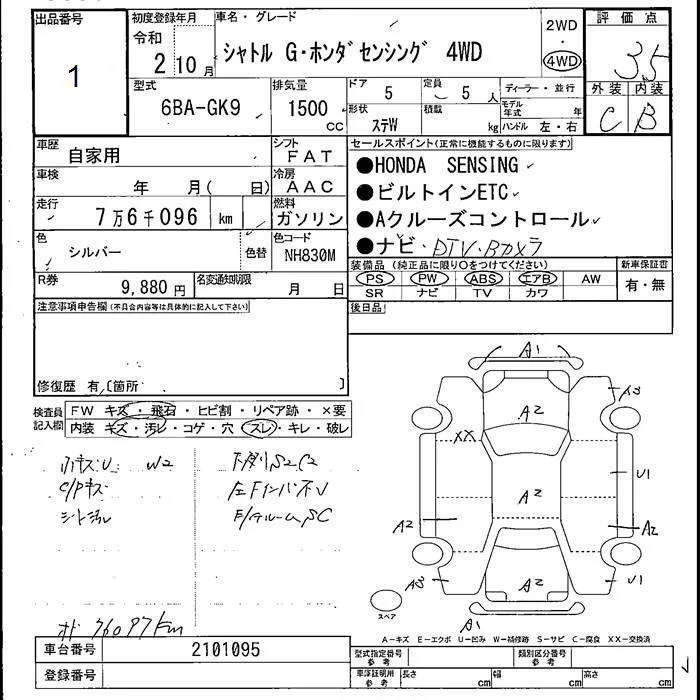 出品番号
1
初度登録年月
令和
2 10月
車名・グレード
シャトル G・ホンダセンシング 4WD
2WD
・
4WD
評価点
3.5
外装 内装
C B
型式
6BA-GK9
排気量
1500
cc
ドア
5
定員
5 人
ディーラー・並行
形状
ステW
積載
kg
モデル年式
年
ハンドル 左・右
車歴
自家用
シフト
FAT
車検
年 月( 日)
冷房
AAC
走行
7万6千096 km
燃料
ガソリン
色
シルバー
色替
色コード
NH830M
R券
9,880 円
名変通知期限
月 日
セールスポイント(正常に機能するものに限ります)
●HONDA SENSING
●ビルトインETC
●Aクルーズコントロール
●ナビ・DTV・Bカメラ
装備品 (純正品に限り○をつけてください)
新車保証書
PS PW ABS エアB AW
SR ナビ TV カワ
有・無
注意事項申告欄(不具合内容等は具体的に記入して下さい)
後日品
修復歴 有(箇所 )
検査員
記入欄
FW キズ・飛石・ヒビ割・リペア跡・×要
内装 キズ・汚レ・コゲ・穴・スレ・キレ・破レ
W2
下廻りS2C2
C/Pキズ
左Fインパネ
シート
SC
オド 76097km
A1
A2
A3
XX
A2
U1
A2
A2
A2
A3
U1
A1
スペア
A-キズ E-エクボ U-凹み W-補修跡 S-サビ C-腐食 XX-交換済
車台番号
2101095
登録番号
型式指定番号
参考
類別区分番号
参考
車庫証明用
参考
長さ cm
幅 cm
高さ cm